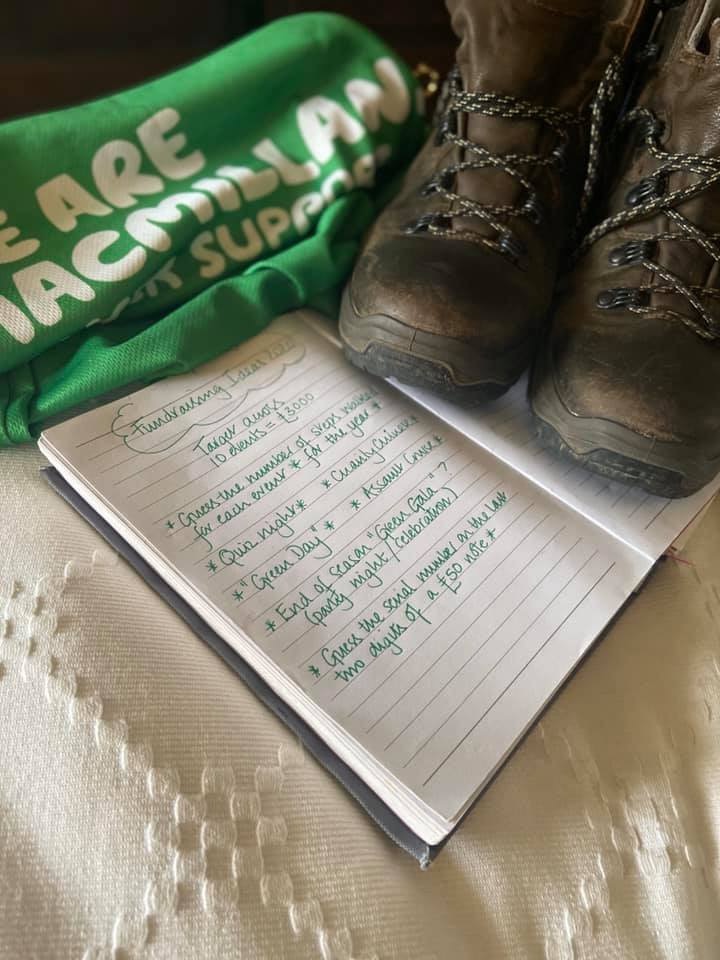 E ARE
MACMILLAN.
SUPPORT
Fundraising Ideas
Target across
10 events = £3000
* Guess the number of steps walked
for each event * for the year *
* Quiz night * * Charity
* "Green Day" * * Assault Course *
* End of season "Green Gala" ?
(party night / celebration)
* Guess the serial number on the last
two digits of a £50 note *